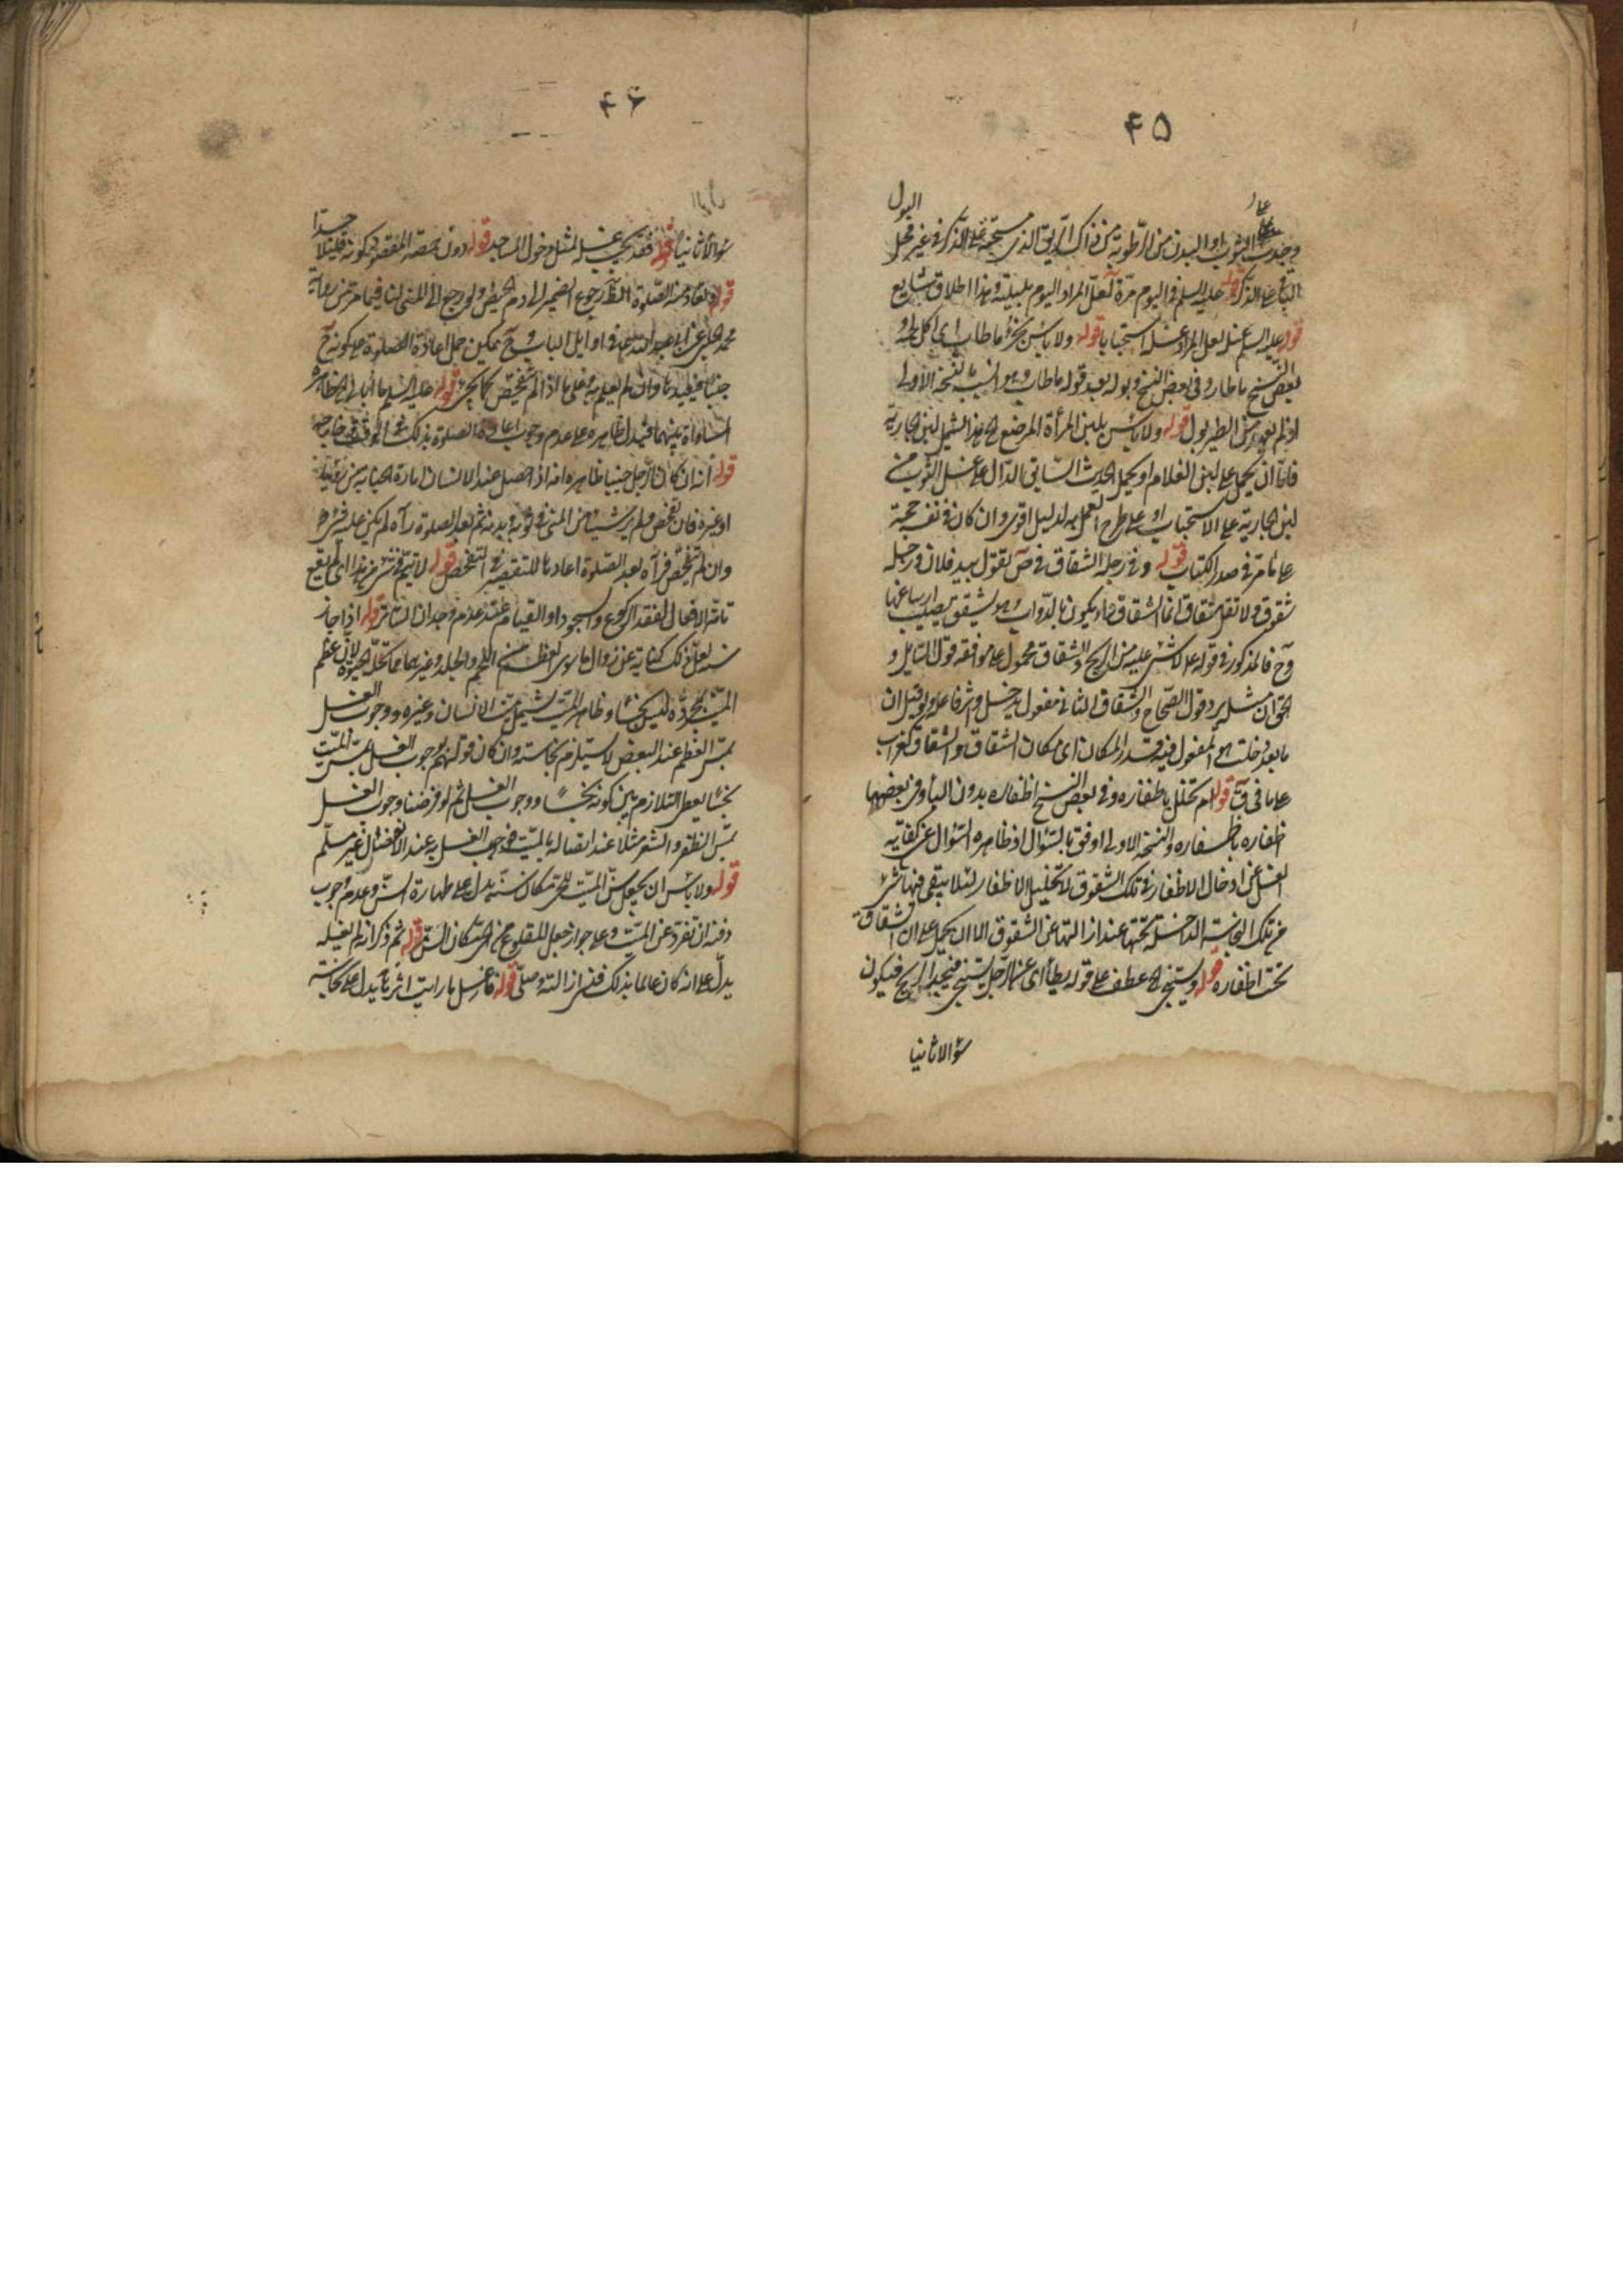 ۴۵
البول
وجدت الثوب او البدن من الرطوبة من ذاك الريق الذى مسحته على الذكر فى غير محل
الباقى على الذكر قوله عليه السلم فى اليوم مرّة لعلّ المراد اليوم بليلته وهذا اطلاق شايع
قوله عليه السلم غسل لعل المراد غسله استحبابا قوله ولا باس بخرؤ ما طار اى اكل لحمه و
بعض النسخ ما طار وفى بعض النسخ وبوله بعد قوله ما طار وهو انسب بالنسخة الاولى
اذ لم يعهد من الطير بول قوله ولا باس بلبن المرأة المرضع الخ هذا يشمل لبن الجارية
فامّا ان يحمل على لبن الغلام او يحمل الحديث السّابق الدّال على غسل الثوب من
لبن الجارية على الاستحباب او على طرح العمل به لدليل اقوى وان كان فى نفسه حجة
على ما مرّ فى صدر الكتاب قوله وفى رجله الشقاق فى ص تقول بيد فلان ورجله
شقوق ولا تقل شقاق انما الشقاق داء يكون بالدّواب وهو يشقق يصيب ارساغها
وح فالمذكور فى قوله لا شىء عليه من الريح والشقاق محمول على موافقة قول السّايل و
الحق ان مثله يرد قول الصّحاح والشقاق الثانى مفعول يدخل
ما بعد دخلت هو المفعول فيه قدر المكان اى مكان الشقاق والشقاق كغراب
على ما فى ق قوله لم تخلل باظفاره وفى بعض النسخ اظفاره بدون الباء وفى بعضها
اظفاره باظفاره والنسخة الاولى اوفق بالسّؤال اذ ظاهره السّؤال عن كفاية
الغسل عن ادخال الاظفار فى تلك الشقوق لا تخليل الاظفار لئلا يبقى فيها شىء
من تلك النجاسة الداخلة تحتها عند ازالتها عن الشقوق الا ان يحمل على ان الشقاق
تحت اظفاره قوله ويستنجى الخ عطف على قوله يطأ اى عن الرّجل يستنجى فيجد الريح فيكون
سؤالا ثانيا
۴۶
سؤالا ثانيا قوله فقد يجب غسله لمثل دخول المساجد قوله دون حمصة المقصود كونه قليلا جدّا
قوله ولا تعاد منه الصّلوة الظّاهر رجوع الضمير الى دم الحيض ولو رجع الى المنى لنافى ما مرّ من رواية
محمد الحلبى عن ابى عبد الله فى اوايل الباب وح يمكن حمل اعادة الصلوة على كونه
جنبا فيعيدها وان لم يعلم به وعلى ما اذا لم يتفحّص كما يجىء قوله عليه السلم ما أبالى الخ ظاهره
المساواة بينهما فيدل ظاهره على عدم وجوب اعادة الصلوة بذلك
قوله انه ان كان الرجل جنبا ظاهره انه اذا حصل عند الانسان امارة الجنابة من
او غيره فان تفحص ولم ير شيئا من المنى فى ثوبه وبدنه ثم بعد الصلوة رآه لم يكن عليه شىء
وان لم يتفحّص فرآه بعد الصّلوة اعادها للتقصير فى التفحص قوله لا يتم فى شىء من هذا اى لم يقع
تامّة الافعال لفقد الركوع والسجود او القيام عند عدم وجدان الساتر قوله اذا جاز
سنة لعلّ ذلك كناية عن زوال ما سوى العظم من اللحم والجلد وغيرهما ممّا تحلّه الحيوة لانّ عظم
الميّت بمجرّده ليس نجسا وظاهر الميّت يشمل ميّت الانسان وغيره ووجوب الغسل
بمسّ العظم عند البعض لا يستلزم نجاسته وان كان قولهم بوجوب الغسل بمسّ الميّت
نجسا يعطى التلازم بين كونه نجسا ووجوب الغسل ثم لو فرضنا وجوب الغسل
بمسّ الظفر والشعر مثلا عند اتصاله بالميّت فوجوب الغسل به عند الانفصال غير مسلّم
قوله ولا باس ان يجعل سنّ الميّت للحىّ مكان سنّه يدل على طهارة السنّ وعدم وجوب
دفنه ان تفرّد عن الميّت وعلى جواز جعل المقلوع من الحىّ مكان السنّ قوله ثم ذكر انه لم يغسله
يدلّ على انه كان عالما بذلك فنسى ازالته وصلّى قوله فاغسل ما رايت اثره ما يدل على نجاسته